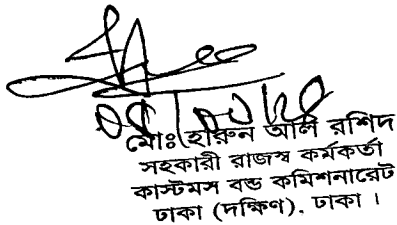 মোঃ হারুন আলি রশিদ
সহকারী রাজস্ব কর্মকর্তা
কাস্টমস বন্ড কমিশনারেট
ঢাকা (দক্ষিণ), ঢাকা ।